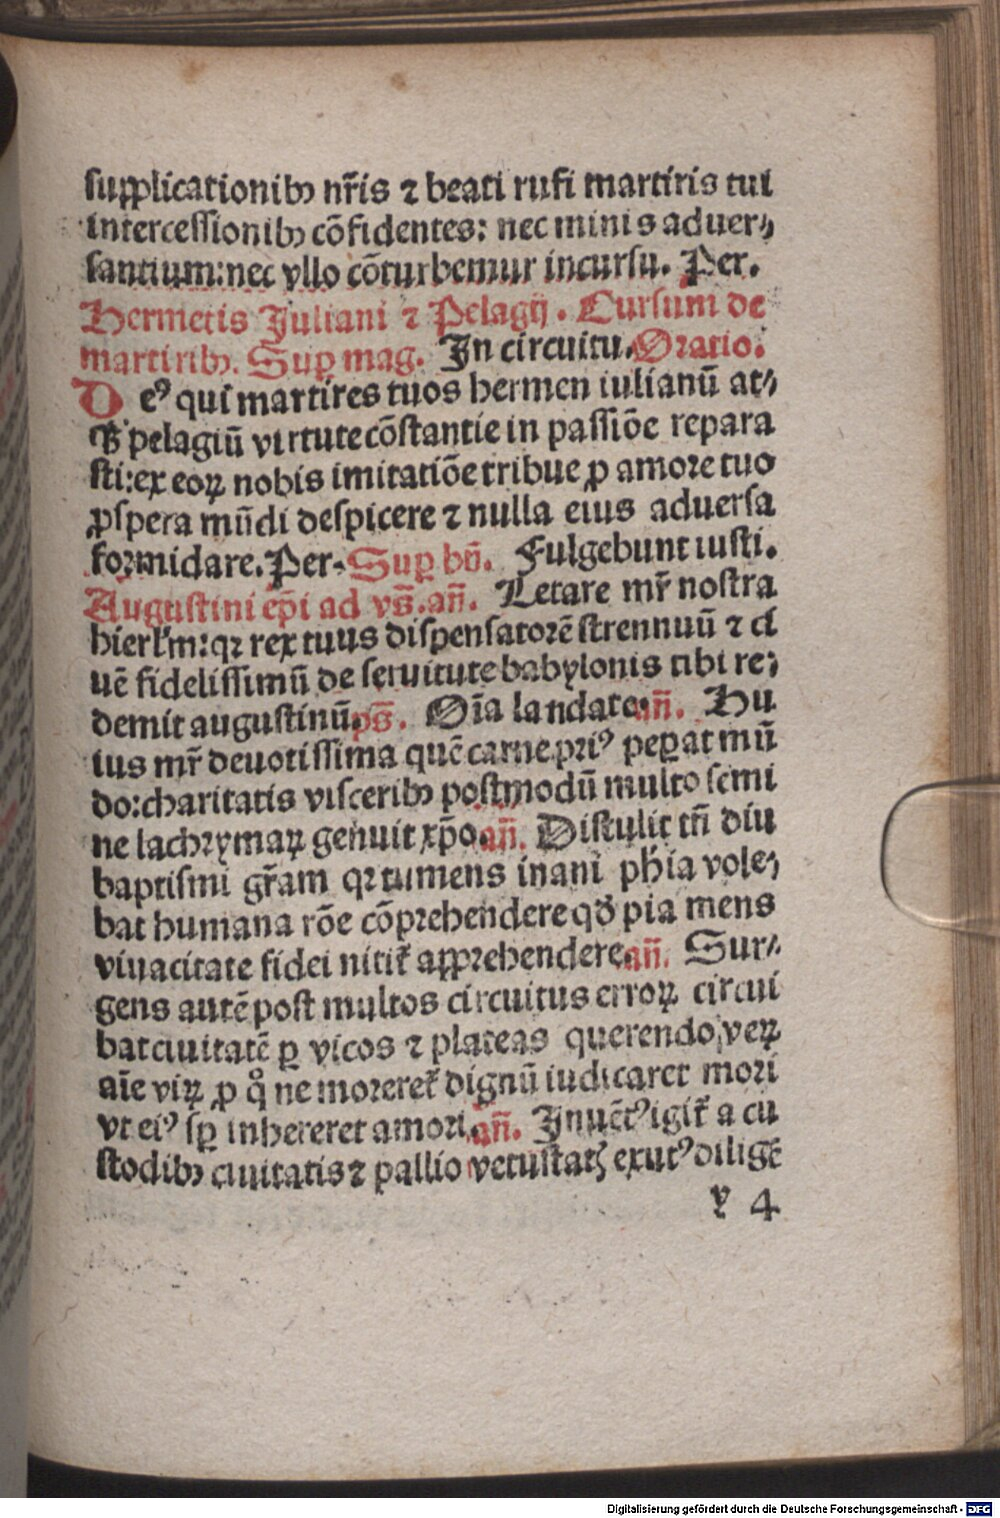 supplicationibꝰ nr̃is ⁊ beati rufi martiris tui
intercessionibꝰ cõfidentes: nec minis aduer⸗
santium: nec vllo cõturbemur incursu. Per.
Hermetis Juliani ⁊ Pelagij. Cursum de
martiribꝰ. Suꝑ mag. In circuitu. Oratio.
Deꝰ qui martires tuos hermen iulianũ at⸗
qꝫ pelagiũ virtute cõstantie in passiõe repara
sti: ex eoꝝ nobis imitatiõe tribue ꝓ amore tuo
ꝓspera mũdi despicere ⁊ nulla eius aduersa
formidare. Per. Suꝑ bñ. Fulgebunt iusti.
Augustini ep̃i ad vs̃. añ. Letare mr̃ nostra
hierl'm: qꝛ rex tuus dispensatorẽ strennuũ ⁊ ci
uẽ fidelissimũ de seruitute babylonis tibi re⸗
demit augustinũ. ps̃. Oĩa landate. añ. Hu
ius mr̃ deuotissima quẽ carne priꝰ peꝑat mũ
do: charitatis visceribꝰ postmodũ multo semi
ne lachrymaꝝ genuit xp̃o. añ. Distulit tñ diu
baptismi gr̃am qꝛ tumens inani ph'ia vole⸗
bat humana rõe cõprehendere qđ pia mens
viuacitate fidei nitit᷑ apprehendere. añ. Sur⸗
gens autẽ post multos circuitus erroꝝ circui
bat ciuitatẽ ꝑ vicos ⁊ plateas querendo veꝝ
aĩe viꝝ ꝓ qͦ ne moreret᷑ dignũ iudicaret mori
vt eiꝰ sꝑ inhereret amori. añ. Inuẽtꝰ igit᷑ a cu
stodibꝰ ciuitatis ⁊ pallio vetustatꝭ exutꝰ diligẽ
y 4
Digitalisierung gefördert durch die Deutsche Forschungsgemeinschaft - DFG